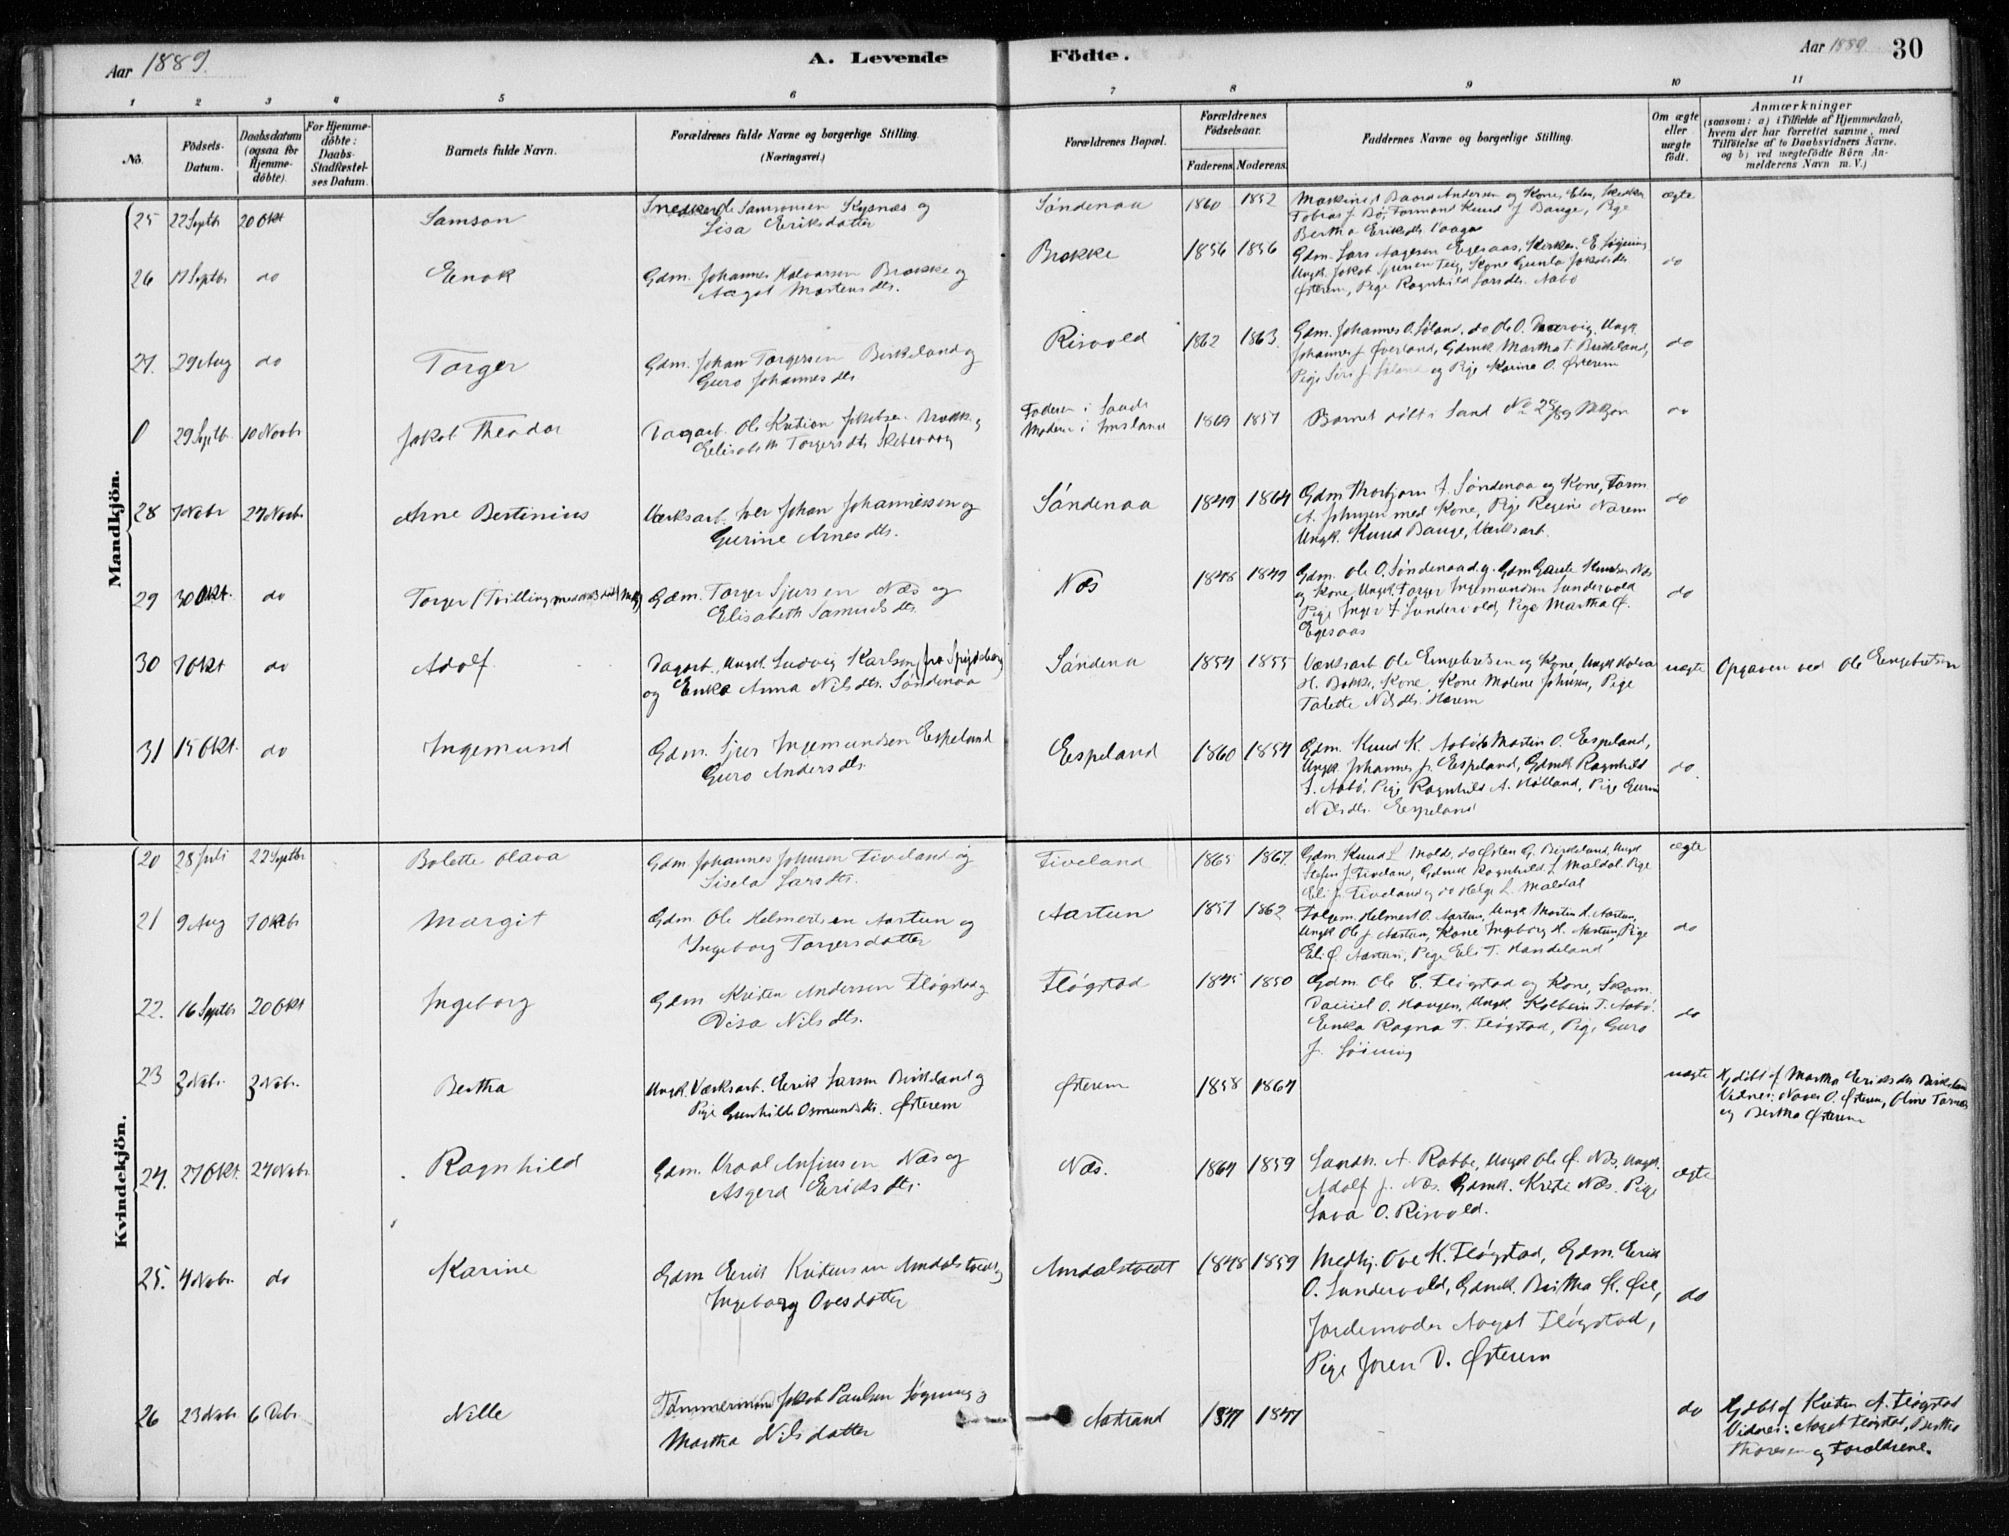 Aar 1889.
A. Levende Födte.
Aar 1889. 30
1 2 3 4 5 6 7 8 9 10 11
No.
Födsels-Datum.
Daabsdatum (ogsaa for Hjemme-döbte).
For Hjemme-döbte: Daabs-Stadfæstel-ses Datum.
Barnets fulde Navn.
Forældrenes fulde Navne og borgerlige Stilling.
(Næringsvei.)
Forældrenes Bopæl.
Forældrenes Födselsaar.
Faderens. Moderens.
Faddernes Navne og borgerlige Stilling.
Om ægte eller uægte födt.
Anmærkninger
(saasom: a) i Tilfælde af Hjemmedaab, hvem der har forrettet samme, med Tilföielse af to Daabsvidners Navne. og b) ved uægtefödte Börn An-melderens Navn m. V.)
Mandkjön.
25 22 Septbr 20 Okt Samson
Samsonsen Kysnæs og
Lisa Eriksdatter
Söndenaa 1860 1852
Baard Andersen og Kone,
Tobias J. Bö, Formand Knud J. Bauge, Pige
Bertha Eriksdtr.
ægte
26 17 Septbr do Enok
Gdm. Johannes Halvorsen Brakke og
Aagot Mortensdtr.
Brakke 1856 1856
Gdm. Lars Aagesen Egesaas,
Ungk. Jakob, Kone Gunla Jakobsdtr
Østerem, Pige Ragnhild Larsdtr. Aabö
do
27. 29 Aug do Torger
Gdm. Johan Torgersen Birkeland og
Guro Johannesdtr
Risvold 1862 1863.
Gdm. Johannes O. Söland, do Ole O. Ungk.
Johannes J. Øverland, Gdmk. Martha T. Birkeland,
Pige Siri J. Söland og Pige Karine O. Østerem
do
29 Septb. 10 Novbr Jakob Theodor
Dagarb. Ole Kristian Jakobsen og
Elisabeth Torgersdtr
Faderen i Sand
Moderen i Imsland
1869 1857
Barnet döbt i Sand No 28/89
do
28 7 Novbr 24 Novbr Arne Bertinius
Værksarb. Iver Johan Johannessen og
Gurine Arnesdtr.
Söndenaa 1849 1864
Gdm Thorbjørn J. Söndenaa og Kone, Form.
A. Johnsen med Kone, Pige Regine Narem
Ungk. Knud Bauge, Værksarb.
do
29 30 Okt. do Torger (Tvilling
Gdm. Torger Sjursen Næs og
Elisabeth Samuelsdtr
Næs 1848 1849
Gdm. Ole O. Söndenaa og Gdm Gaute Knudsen Næs
og Kone, Ungk Torger Ingemundsen Sundervold
Pige Inger I Sundervold, Pige Martha Ø.
Egesaas
do
30 7 Okt do Adolf
Dagarb. Ungk. Ludvig Karlsen, fra Spydeberg
og Enke Anna Nilsdtr. Söndenaa
Söndena 1854 1855
Værksarb. Ole Engebretsen og Kone, Ungk Halvor
H. Bakke, Kone, Kone Maline Johnsen, Pige
Talette Nilsdtr. Harem
uægte Opgaven ved Ole Engebretsen
31 15 Okt. do Ingemund
Gdm. Sjur Ingemundsen Espeland
Guro Andersdtr.
Espeland 1860 1854
Gdm. Knud K. Aabö, Martin O. Espeland,
Ungk. Johannes J. Espeland, Gdmk Ragnhild
I. Aabö. Pige Ragnhild A. Hölland, Pige Guren
Nilsdtr. Espeland
do.
Kvindekjön.
20 28 Juli 22 Septbr Bolette Olava
Gdm. Johannes Johnsen Fiveland og
Sisela Larsdtr.
Fiveland 1865 1867.
Gdm. Knud L Molde, do Østen G. Birkeland, Ungk
Stefen J. Fiveland, Gdmk Ragnhild L Maldal. Pige
Eli J. Fiveland og do Helge L. Maldal
ægte
21 9 Aug 7 Oktbr Margit
Gdm. Ole Helmertsen Aartun og
Ingeborg Torgersdatter
Aartun 1851 1862
Helmert O. Aartun, Ungk Martin H. Aartun,
Ungk Ole J. Aartun, Kone Ingeborg H. Aartun, Pige
Eli Ø. Aartun, Pige Eli T. Handeland
do
22. 16 Septbr 20 Okt Ingeborg
Gdm Kristen Andersen Flögstad og
Disa Nilsdtr.
Flögstad 1845 1850
Gdm. Ole C. Flögstad og Kone, Skom.
Daniel O. Haugen, Ungk Kolbein T. Aabö.
Enke Ragna T. Flögstad, Pige Guro
J. Löining
do
23 3 Novbr. 3 Novbr. Bertha
Ungk. Værksarb. Erik Larsen Birkeland og
Pige Gunhilde Osmundsdtr. Østerem
Østerem 1858 1864
uægte Hjdöbt af Martha Eriksdtr Birkeland
Vidner: O. Østerem, Oline
og Bertha Østerem
24. 27 Okt. 24 Novbr Ragnhild
Gdm. Anfinsen Næs og
Asgerd Eriksdtr.
Næs. 1864 1859
Landh. A. Rabbe, Ungk Ole Ø. Næs, Ungk.
Adolf J. Næs. Gdmk. Kristi Næs. Pige
Lava O. Risvold.
ægte
25. 4 Novbr. do Karine
Gdm Erik Kristensen Amdalstvedt og
Ingeborg Ovesdatter
Amdalstvedt 1848 1859
Medhj. Ove K. Flögstad, Gdm. Erik
O. Sundervold, Gdmk. Bertha K. Øie,
Jordemoder Aagot Flögstad,
Pige Joren D. Østerem
do
26 23 Novbr 6 Debr Nille
Tömmermand Jakob Paulsen og
Martha Nilsdatter
Aastrand 1847 1847
do Hjdöbt af Kristen A. Flögstad
Vidner: Aagot Flögstad, Bertha
Thoresen og Forældrene.